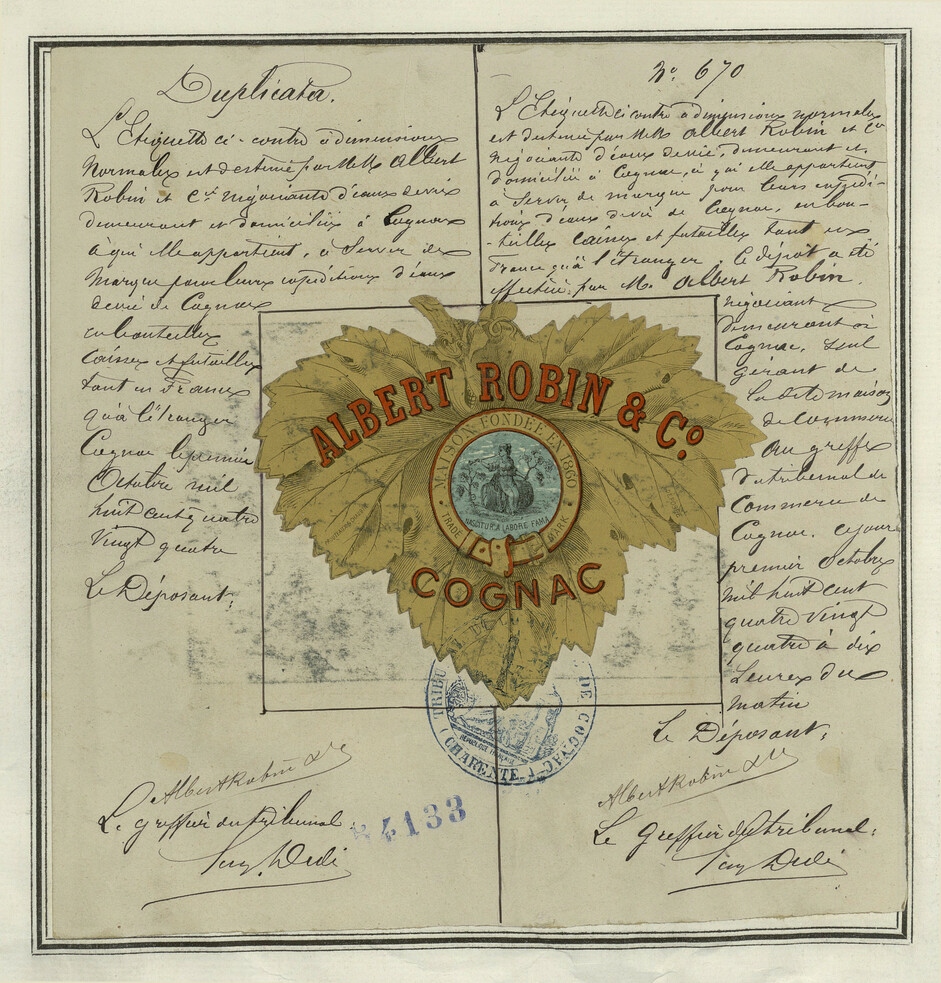 Duplicata.
L'Etiquette ci-contre à dimensions
Normales est destinée par MM Albert
Robin et Cie négociants d'eaux de vie
demeurant et domiciliés à Cognac
à qui elle appartient, à Servir de
Marque pour leurs expéditions d'eaux
de vie de Cognac
en bouteilles
Caisses et futailles
tant en France
qu'à l'étranger
Cognac le premier
Octobre mil
huit cent quatre
Vingt quatre
Le Déposant;
Albert Robin & Cie
Le greffier du tribunal
No 670
L'Etiquette ci contre à dimensions normales
est destinée par MM. Albert Robin et Co
négociants d'eaux de vie, demeurant et
domiciliés à Cognac, à qui elle appartient
à Servir de marque pour leurs expédi-
tions d'eaux de vie de Cognac, en bou-
-teilles Caisses et futailles tant en
France qu'à l'étranger. Le dépôt a été
effectué par M. Albert Robin.
négociant
demeurant à
Cognac, seul
gérant de
la dite maison
de Commerce
Au greffe
du tribunal de
Commerce de
Cognac, ce jour
premier Octobre
mil huit cent
quatre Vingt
quatre à dix
heures du
matin
Le Déposant;
Albert Robin & Cie
Le Greffier du tribunal;
ALBERT ROBIN & Co.
MAISON FONDÉE EN 1860
NASCITUR A LABORE FAMA
TRADE MARK
COGNAC
TRIBUNAL DE COGNAC
RÉPUBLIQUE FRANÇAISE
(CHARENTE)
4133